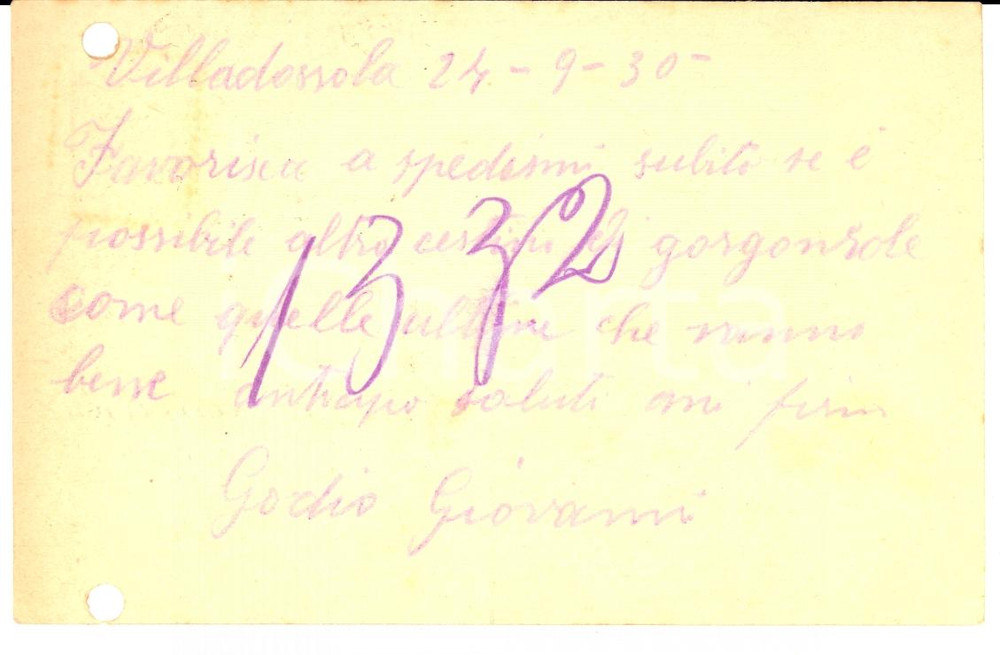 Villadossola 24 - 9 - 30 -
Favorisca a spedirmi subito se è
possibile altro cestini di gorgonzole
come quelle ultime che vanno
bene anticipo saluti mi firm
Godio Giovanni
1332